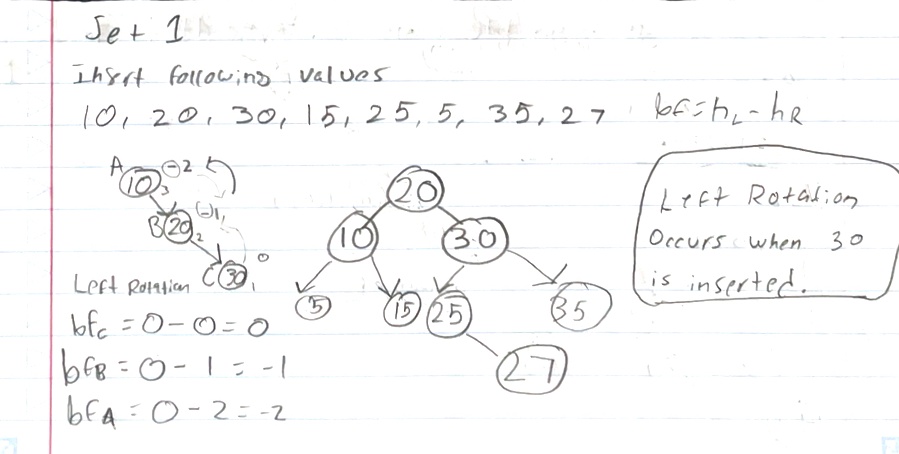 Set 1
Insert following values
10, 20, 30, 15, 25, 5, 35, 27
bf = hL - hR
A 10 3 -2
B 20 2 -1
C 30 1 0
Left Rotation
bfC = 0 - 0 = 0
bfB = 0 - 1 = -1
bfA = 0 - 2 = -2
20
10 30
5 15 25 35
27
Left Rotation
Occurs when 30
is inserted.